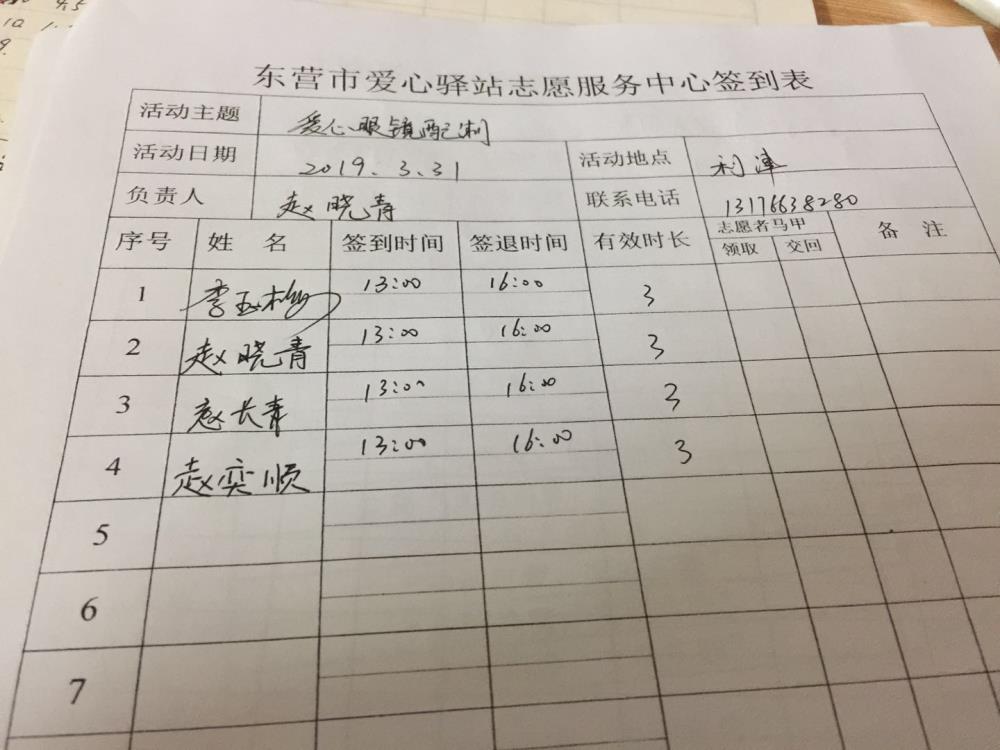 东营市爱心驿站志愿服务中心签到表
活动主题 爱心眼镜配制
活动日期 2019.3.31 活动地点 利津
负责人 赵晓青 联系电话 13176638280
序号 姓 名 签到时间 签退时间 有效时长 志愿者马甲 备 注
领取 交回
1 李玉梅 13:00 16:00 3
2 赵晓青 13:00 16:00 3
3 赵长青 13:00 16:00 3
4 赵奕顺 13:00 16:00 3
5
6
7